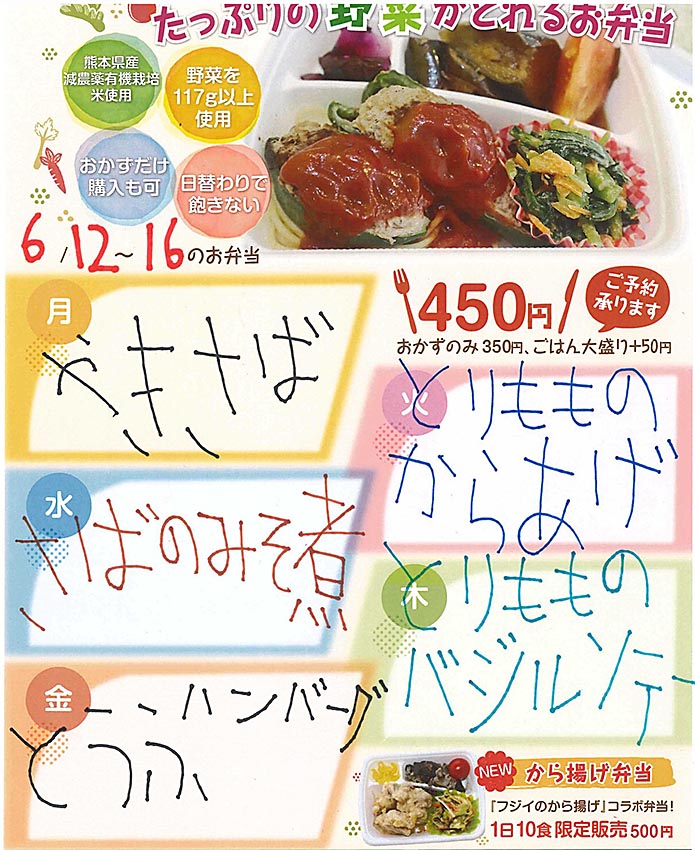 たっぷりの野菜がとれるお弁当
熊本県産
減農薬有機栽培
米使用
野菜を
117g以上
使用
おかずだけ
購入も可
日替わりで
飽きない
6/12～16のお弁当
450円
ご予約
承ります
おかずのみ350円、ごはん大盛り+50円
月
やきさば
火
とりももの
からあげ
水
さばのみそ煮
木
とりももの
バジルソテー
金
とうふハンバーグ
NEW から揚げ弁当
『フジイのから揚げ』コラボ弁当!
1日10食限定販売500円